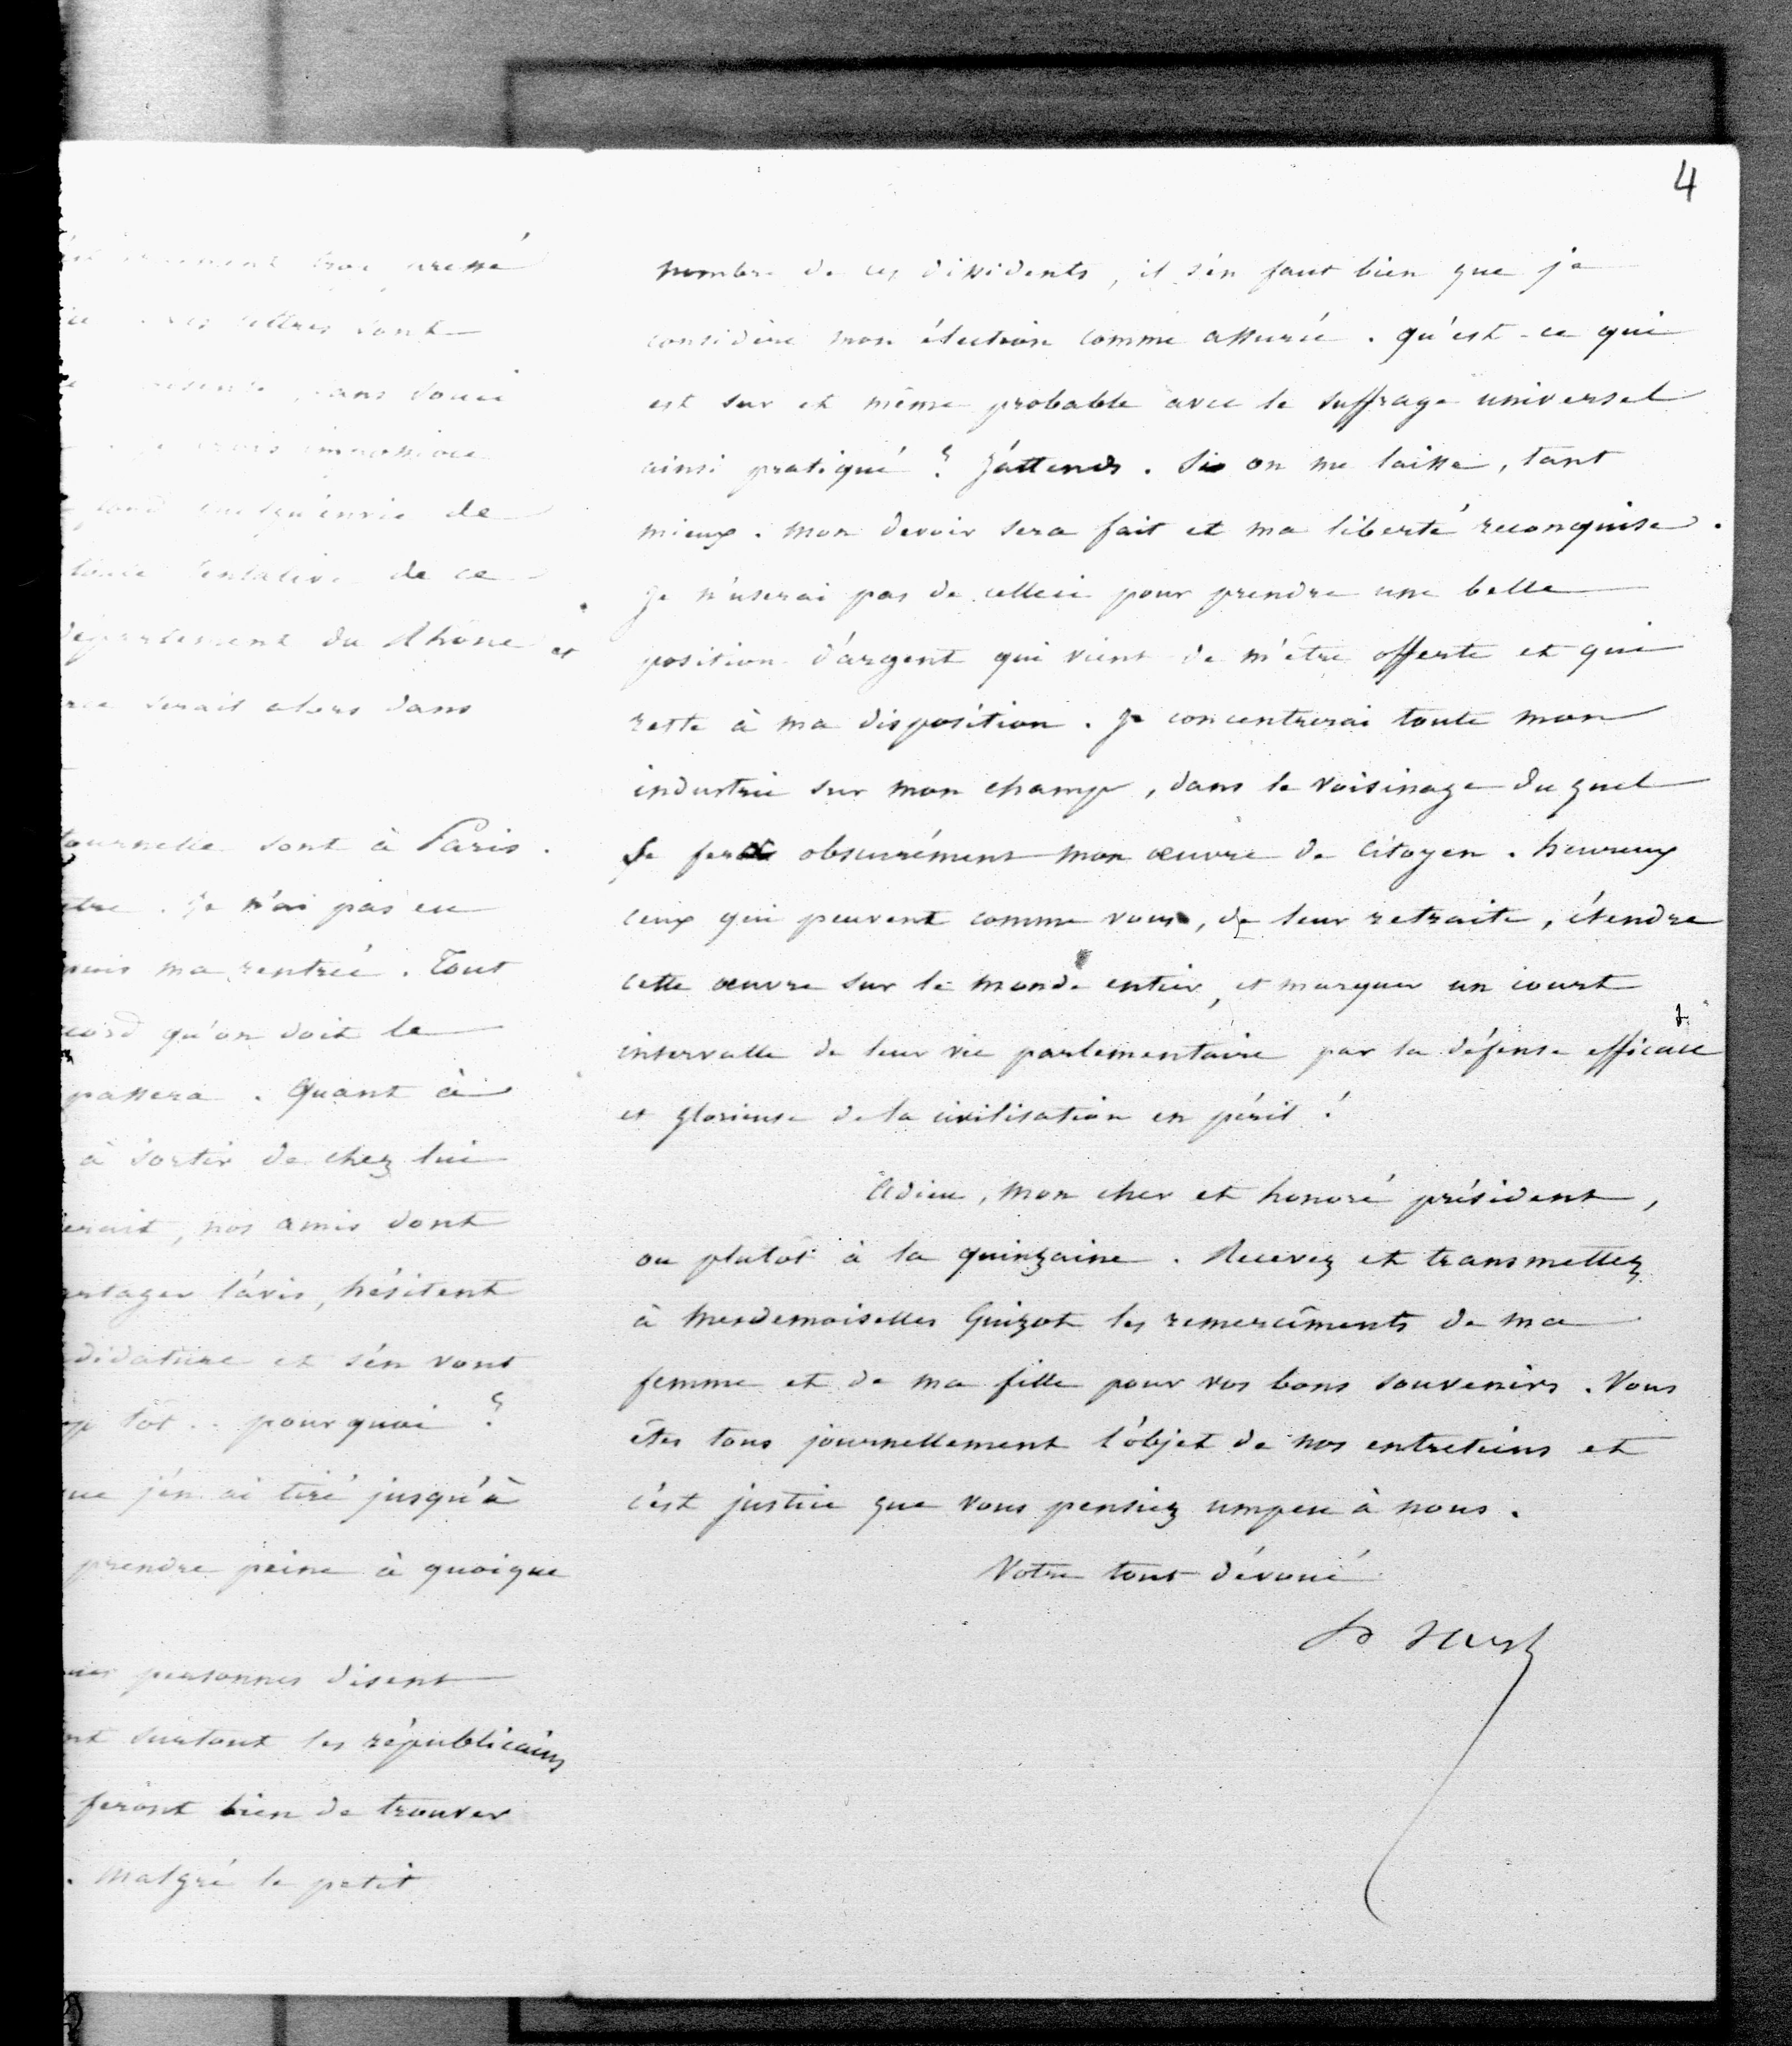 4
pressé
lettres sont
sans souci
de
tentative de ce
département du Rhône et
serait alors dans
sont à Paris.
. Je n'ai pas eu
ma rentrée. Tout
qu'on doit le
passera. Quant à
à sortir de chez lui
, nos amis dont
l'avis, hésitent
et s'en vont
tôt .. pourquoi ?
j'en ai tiré jusqu'à
prendre peine à quoique
personnes disent
surtout les républicains
feront bien de trouver
. Malgré le petit
nombre de ces dissidents, il s'en faut bien que je
considère mon élection comme assurée. qu'est-ce qui
est sur et même probable avec le suffrage universel
ainsi pratiqué ? J'attends. Si on me laisse, tant
mieux. mon devoir sera fait et ma liberté reconquise.
Je n'userai pas de celleci pour prendre une belle
position d'argent qui vient de m'être offerte et qui
reste à ma disposition. Je concentrerai toute mon
industrie sur mon champ, dans le voisinage duquel
Je ferai obscurément mon œuvre de citoyen. heureux
ceux qui peuvent comme vous, de leur retraite, étendre
cette œuvre sur le monde entier, et marquer un court
intervalle de leur vie parlementaire par la défense efficace
et glorieuse de la civilisation en péril !
Adieu, mon cher et honoré président,
ou plutôt à la quinzaine. Recevez et transmettez
à Mesdemoiselles Guizot les remercîments de ma
femme et de ma fille pour vos bons souvenirs. Vous
êtes tous journellement l'objet de nos entretiens et
c'est justice que vous pensiez unpeu à nous.
Votre tout dévoué